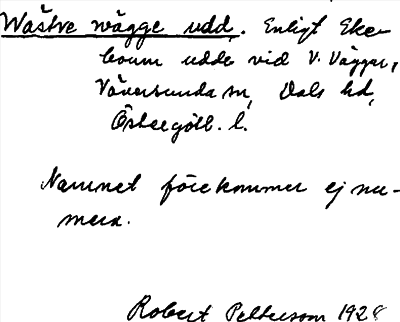 Wästre wägge udd. Enligt Eke-
bom udde vid V. Väggar,
Väversunda sn, Dals hd,
Östergötl. l.
Namnet förekommer ej nu-
mera.
Robert Pettersson 1928